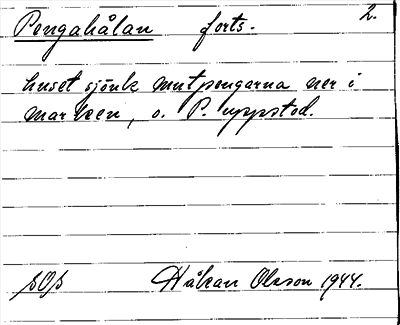 Pengahålan forts. 2.
huset sjönk mutpengarna ner i
marken, o. P. uppstod.
Håkan Olsson 1944.